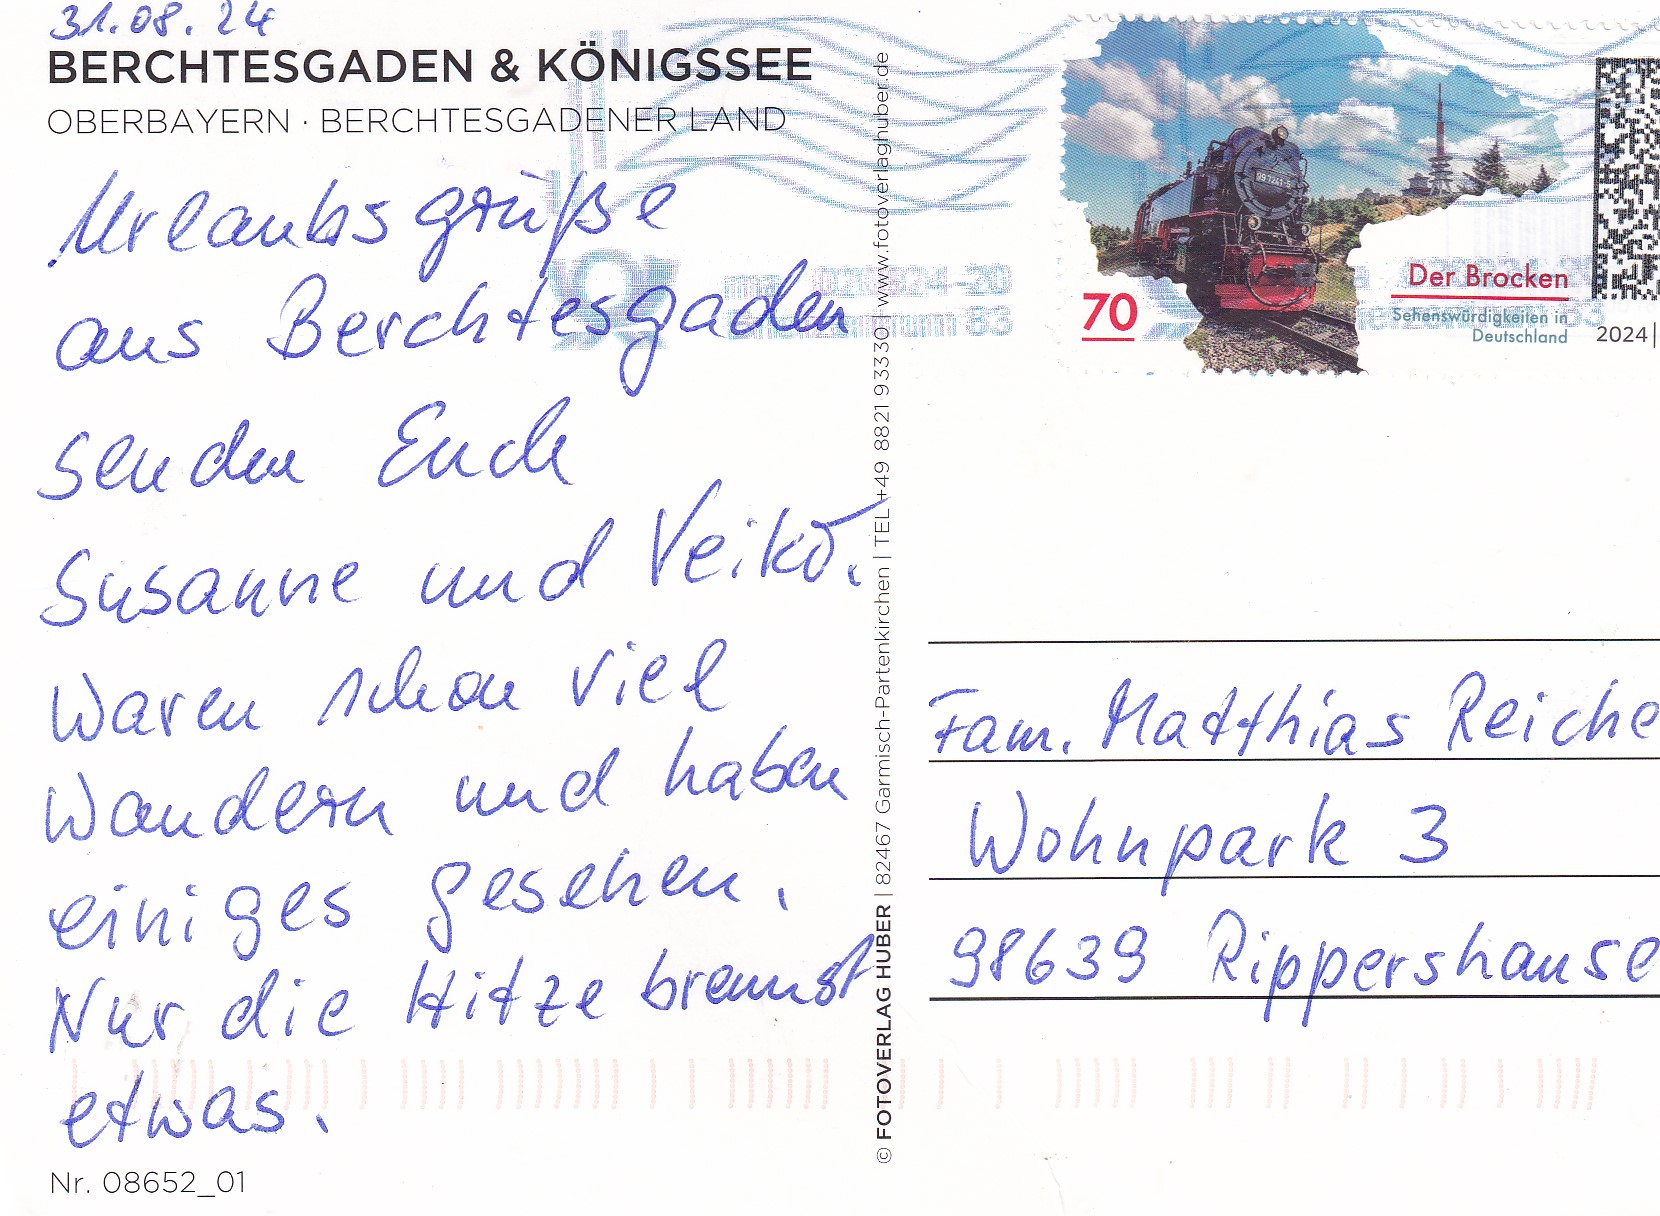 31.08.24
BERCHTESGADEN & KÖNIGSSEE
OBERBAYERN · BERCHTESGADENER LAND
Urlaubsgrüße
aus Berchtesgaden
senden Euch
Susanne und Veiko.
Waren schon viel
Wandern und haben
einiges gesehen.
Nur die Hitze bremst
etwas.
Nr. 08652_01
© FOTOVERLAG HUBER | 82467 Garmisch-Partenkirchen | TEL +49 8821 93330 | www.fotoverlaghuber.de
99 7241-5
70
Der Brocken
Sehenswürdigkeiten in
Deutschland
2024
Fam. Matthias Reiche
Wohnpark 3
98639 Rippershause